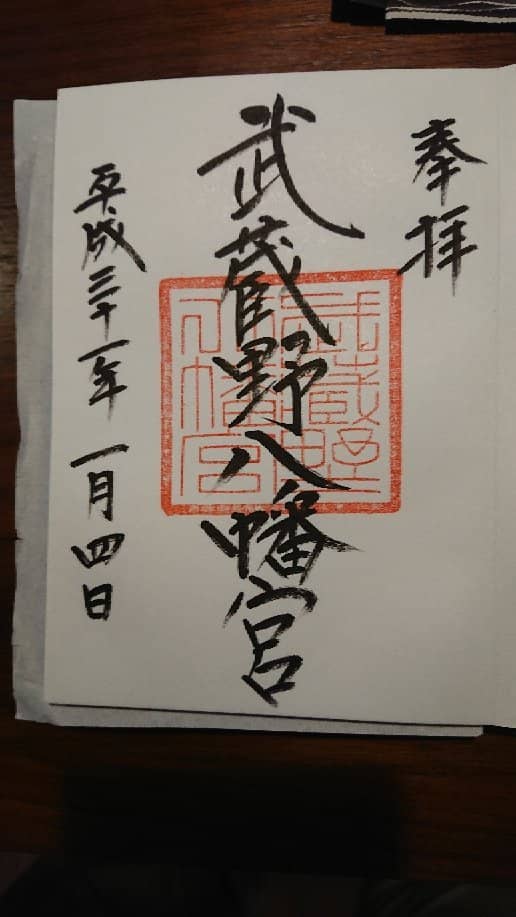 奉拝
武蔵野八幡宮
武蔵野八幡宮
平成三十一年一月四日